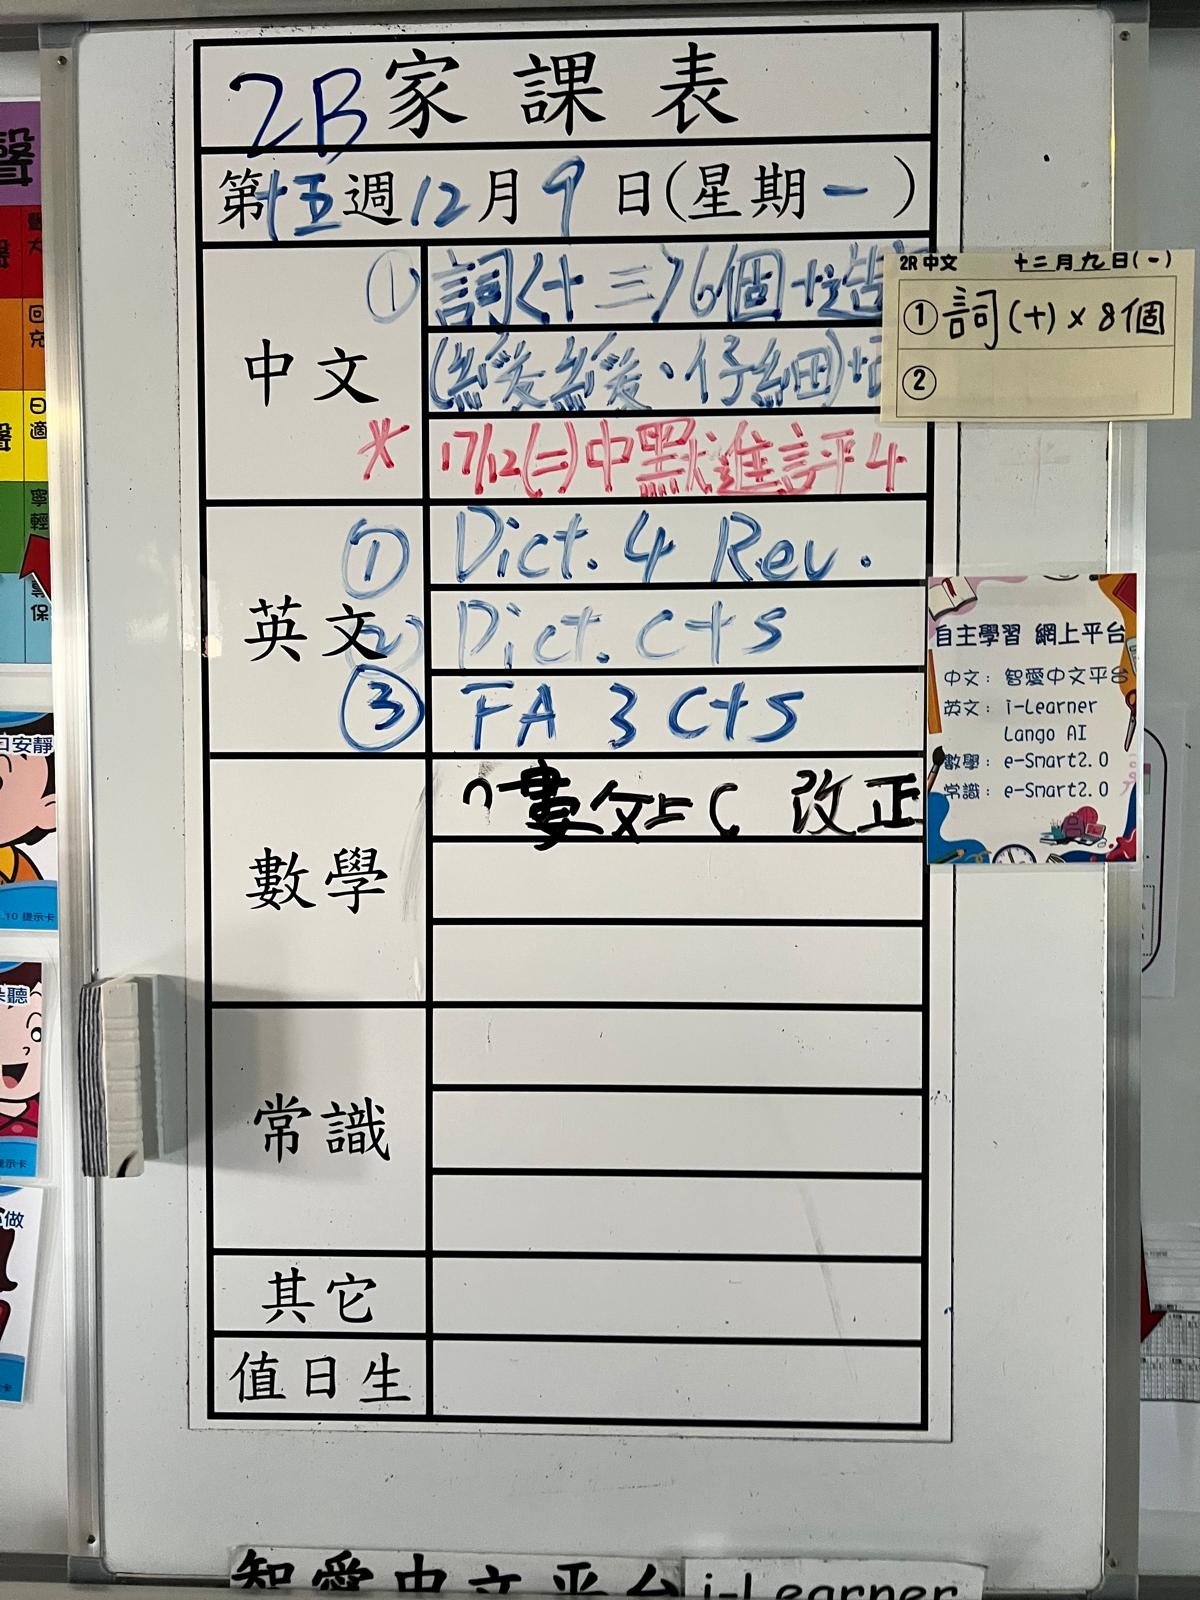 2B家課表
第十五週12月9日(星期一)
中文
① 詞(十三)6個+造
(緩緩、仔細)+
* 17/12(二)中默進評4
英文
① Dict. 4 Rev.
② Dict. cts
③ FA 3 cts
數學
改正
常識
其它
值日生
2R中文 十二月九日(一)
①詞(十)x8個
②
自主學習 網上平台
中文: 智愛中文平台
英文: i-Learner
Lango AI
數學: e-Smart2.0
常識: e-Smart2.0
口安靜
.10 提示卡
朵聽
提示卡
做
聲
日
適
回
充
寧
輕
保
智愛中文平台 i-Learner